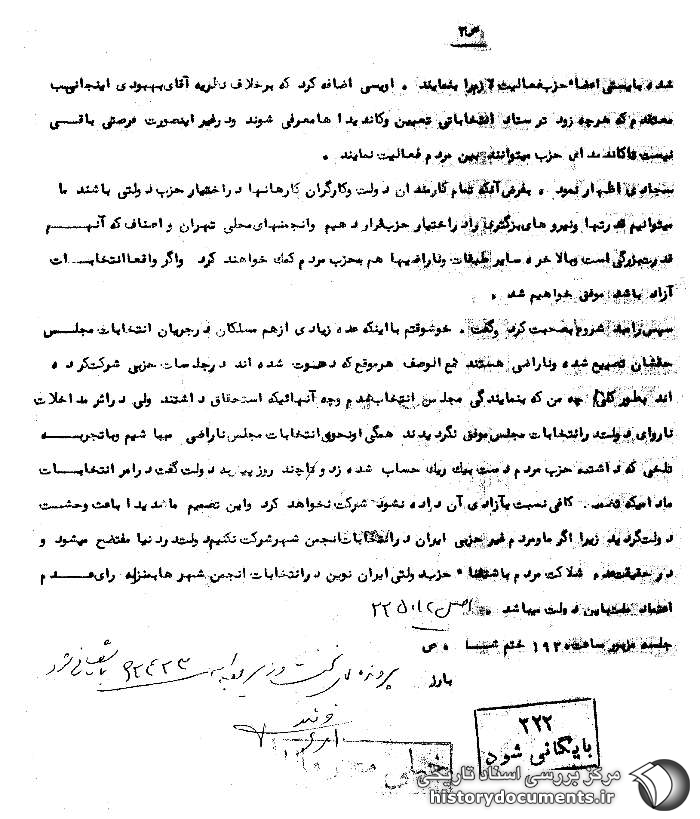 ص۳
شده بایستی اعضاء حزب فعالیت لازم را بنمایند . اویسی اضافه کرد که برخلاف نظریه آقای بهبودی اینجانب
معتقدم که هرچه زود تر ستاد انتخاباتی تعیین وکاندیدا هامعرفی شوند ودرغیر اینصورت فرصتی باقی
نیست تاکاندیدا های حزب میتوانند بین مردم فعالیت نمایند .
سجادی اظهار نمود . بفرض آنکه تمام کارمندان دولت وکارگران کارخانها دراختیار حزب دولتی باشند ما
میتوانیم قدرتها ونیرو های بزرگتری را دراختیار حزب قرار دهیم وانجمنهای محلی تهران و اصناف که آنهم
قدرت بزرگی است وبالاخره سایر طبقات وناراضیها هم بحزب مردم کمک خواهند کرد واگر واقعا انتخابات
آزاد باشد موفق خواهیم شد .
سپس رامبد شروع بصحبت کرد وگفت . خوشوقتم بااینکه عده زیادی ازهم مسلکان درجریان انتخابات مجلس
حقشان تضییع شده وناراضی هستند مع الوصف هرموقع که دعوت شده اند درجلسات حزبی شرکت کرده
اند بطور کلی چه من که بنمایندگی مجلس انتخاب شدم وچه آنهائیکه استحقاق داشتند ولی دراثر مداخلات
ناروای دولت درانتخابات مجلس موفق نگردیدند همگی ازنحوه انتخابات مجلس ناراضی میباشیم وباتجربه
تلخی که داشته حزب مردم دست بیک ریک حساب شده زد وتاچند روز پیش به دولت گفت درامر انتخابات
مادامیکه کافی نسبت بآزادی آن داده نشود شرکت نخواهد کرد واین تصمیم ماشدیدا باعث وحشت
دولت گردید زیرا اگر ما ومردم غیر حزبی ایران درانتخابات انجمن شهر شرکت نکنیم دولت دردنیا مفتضح میشود و
درحقیقت عدم شرکت مردم باستثناء حزب دولتی ایران نوین درانتخابات انجمن شهر ها بمنزله رای عدم
اعتماد ملت باین دولت میباشد .
جلسه مزبور ساعت ۱۹۳۰ ختم شد . ص
پرونده
۳۲۲
بایگانی شود
خیلی محرمانه
مرکز بررسی اسناد تاریخی
historydocuments.ir